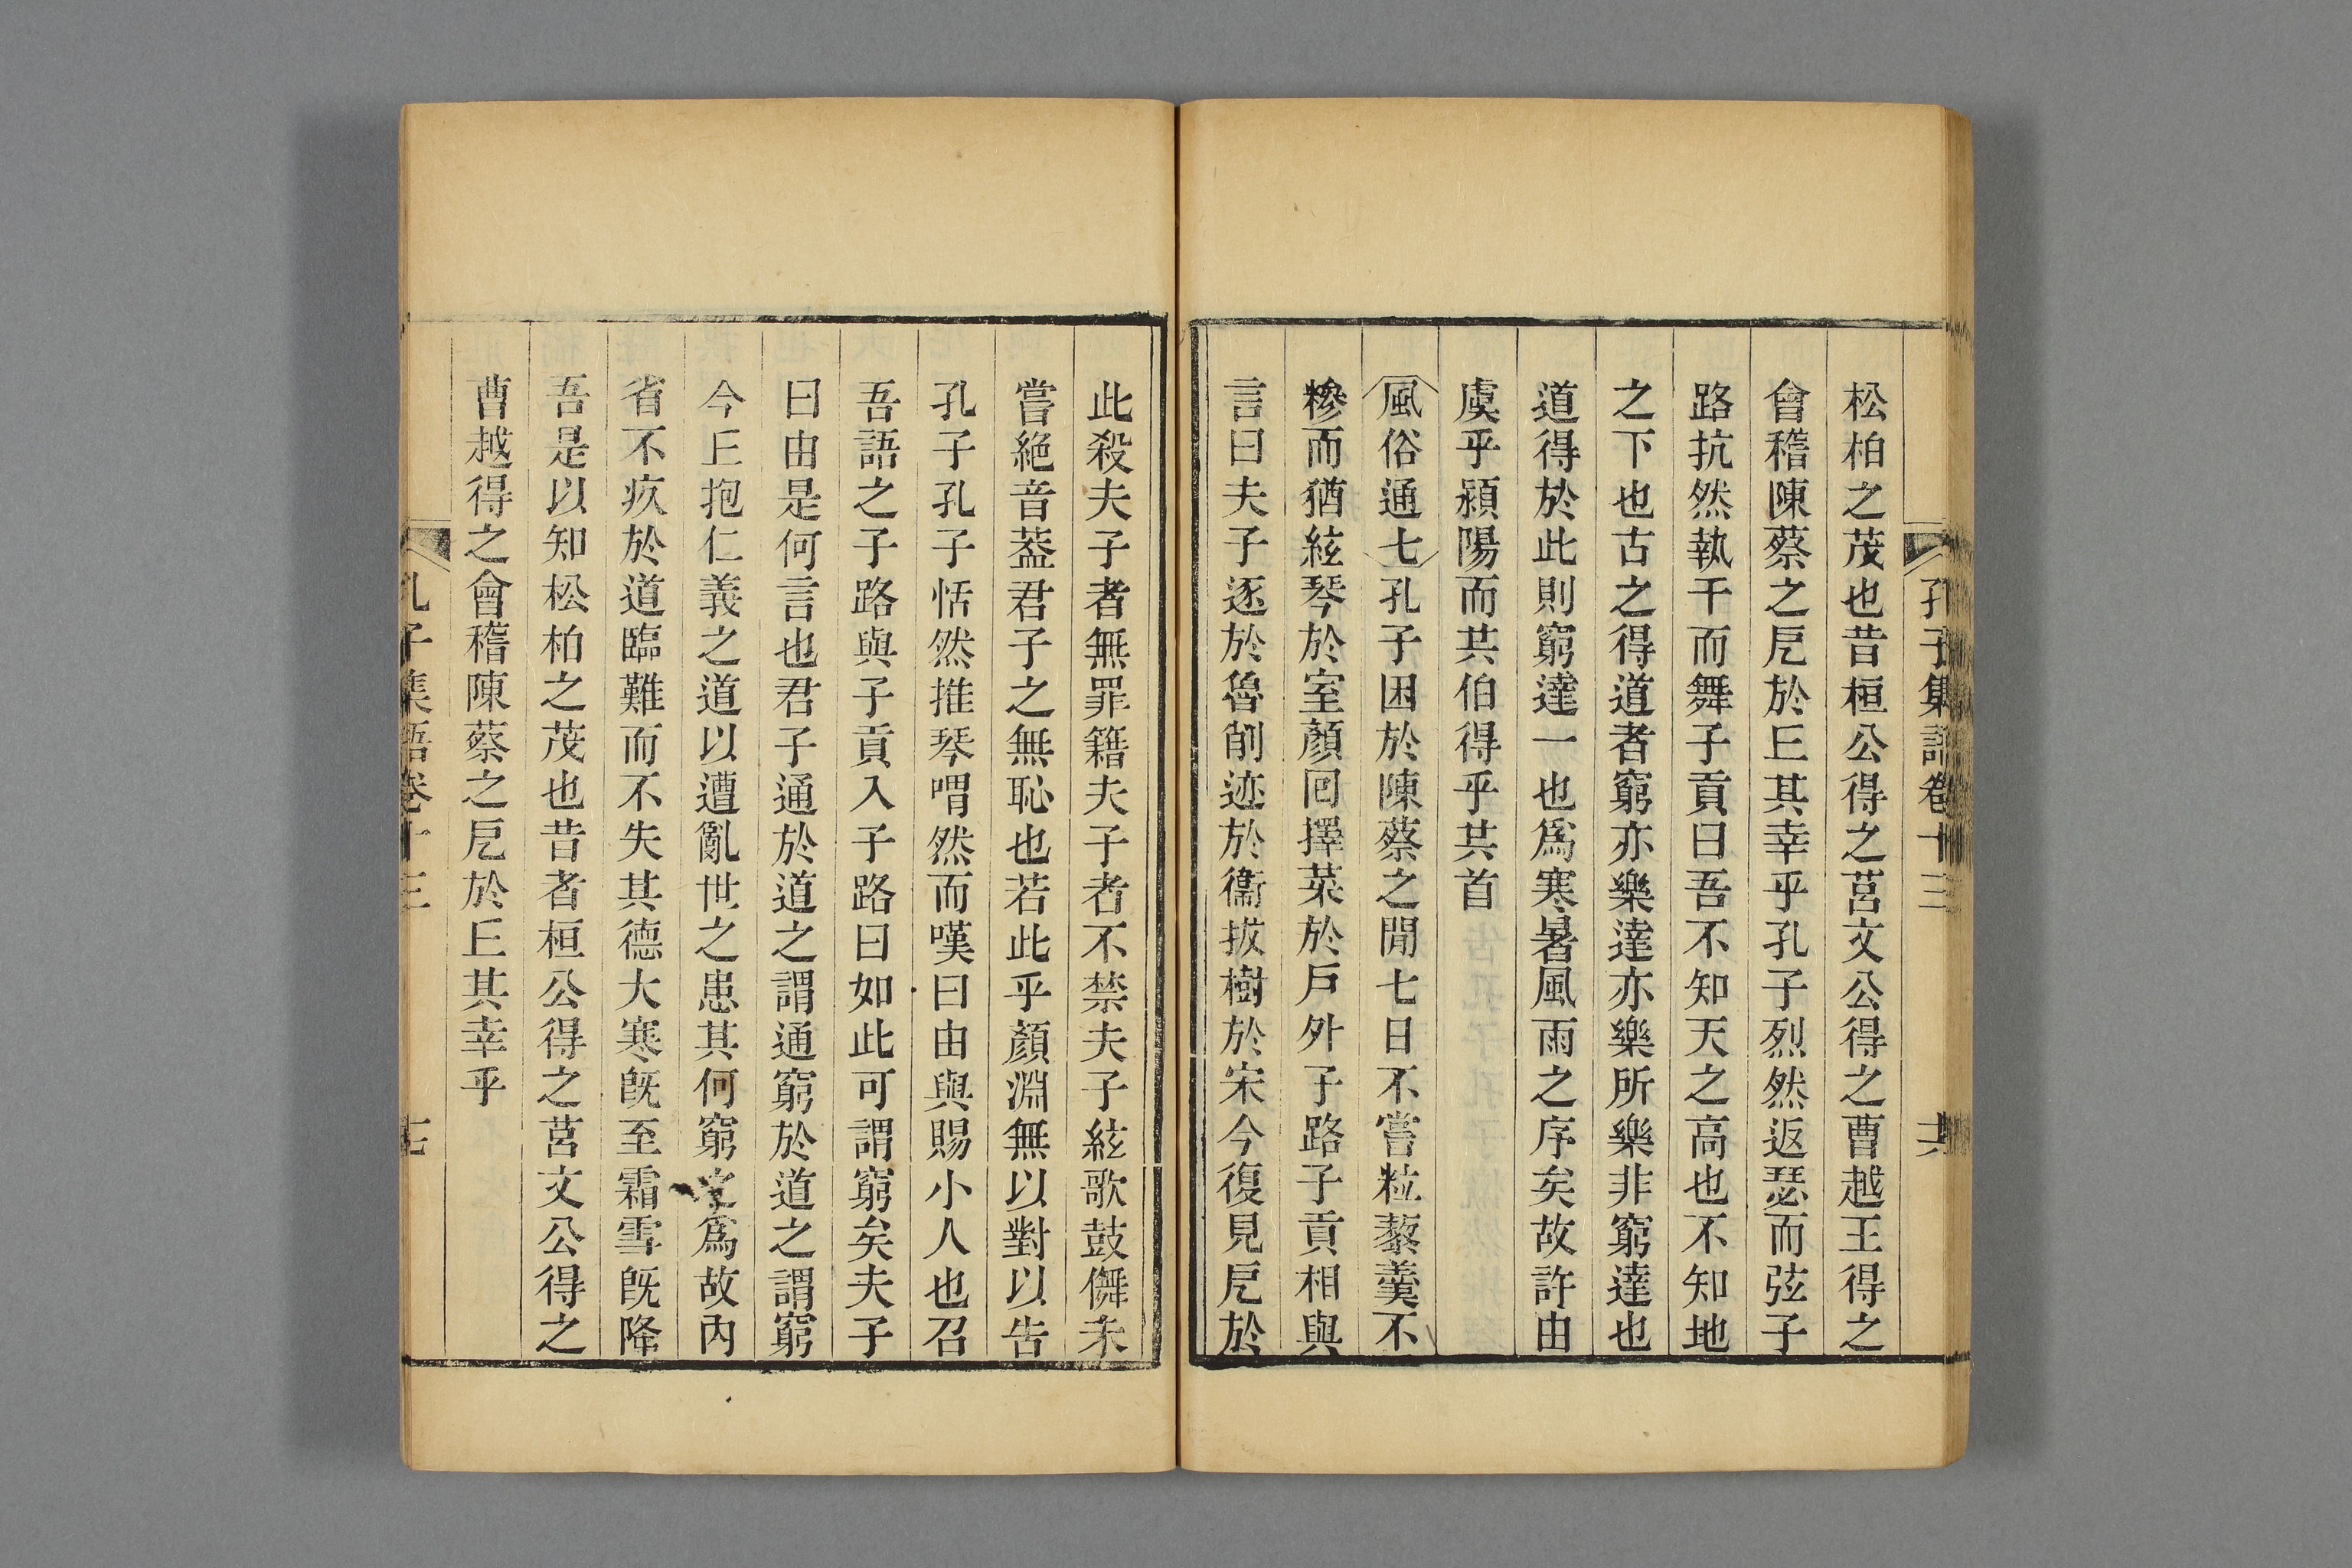 孔子集語卷十三
十六
松柏之茂也昔桓公得之莒文公得之曹越王得之
會稽陳蔡之戹於𠀉其幸乎孔子烈然返瑟而弦子
路抗然執干而舞子貢曰吾不知天之高也不知地
之下也古之得道者窮亦樂達亦樂所樂非窮達也
道得於此則窮達一也爲寒暑風雨之序矣故許由
虞乎潁陽而共伯得乎共首
風俗通七孔子困於陳蔡之閒七日不嘗粒藜羹不
糝而猶絃琴於室顏回擇菜於戶外子路子貢相與
言曰夫子逐於魯削迹於衞拔樹於宋今復見戹於
此殺夫子者無罪籍夫子者不禁夫子絃歌鼓儛未
嘗絕音葢君子之無恥也若此乎顏淵無以對以告
孔子孔子恬然推琴喟然而嘆曰由與賜小人也召
吾語之子路與子貢入子路曰如此可謂窮矣夫子
曰由是何言也君子通於道之謂通窮於道之謂窮
今𠀉抱仁義之道以遭亂世之患其何窮之爲故內
省不疚於道臨難而不失其德大寒旣至霜雪旣降
吾是以知松柏之茂也昔者桓公得之莒文公得之
曹越得之會稽陳蔡之戹於𠀉其幸乎
孔子集語卷十三
十七